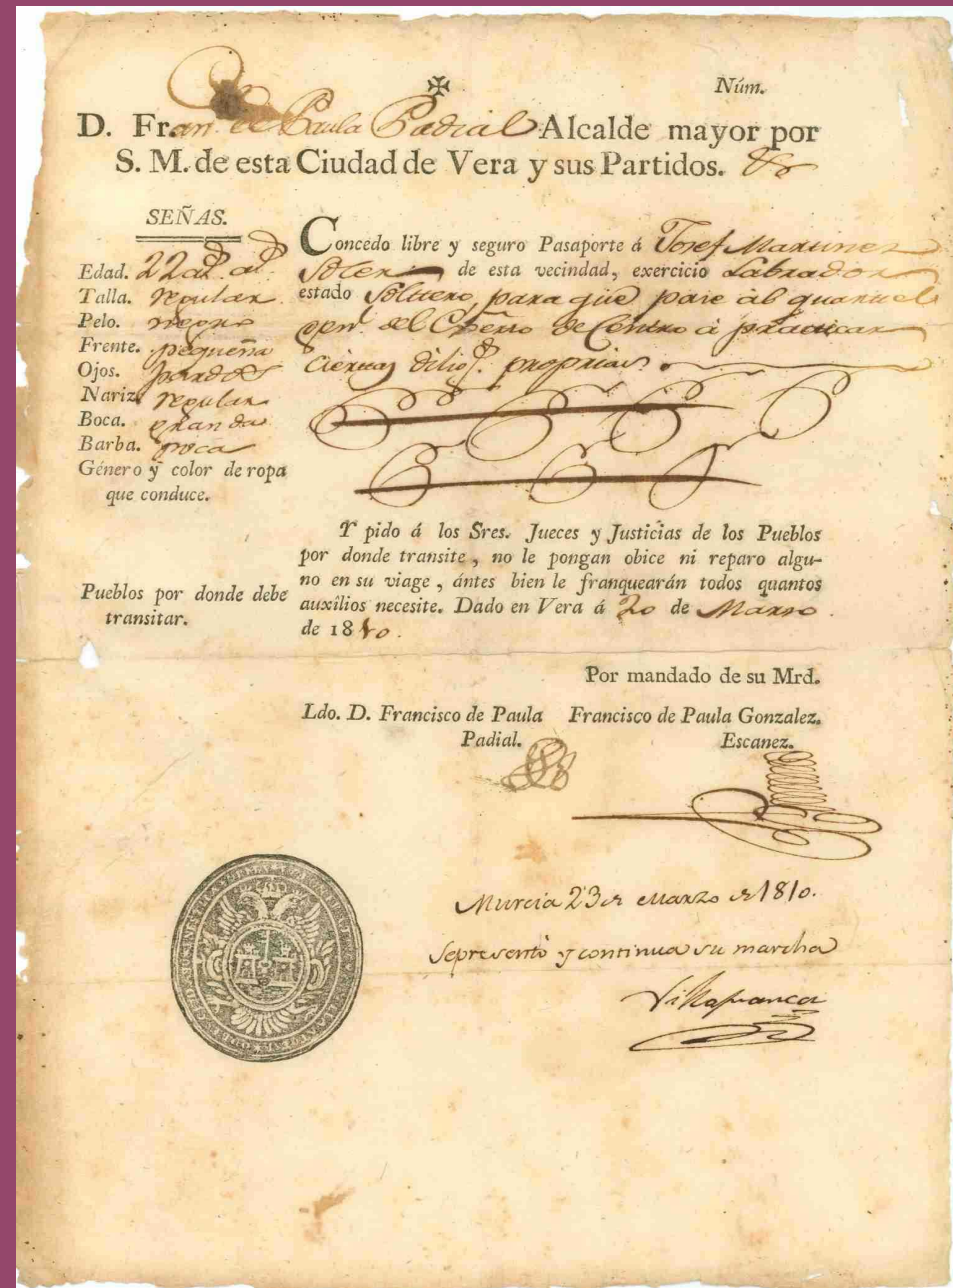 Núm.
D. Fran. de Paula Padial Alcalde mayor por
S. M. de esta Ciudad de Vera y sus Partidos. &
SEÑAS.
Edad. 22
Talla. regular
Pelo. negro
Frente. pequeña
Ojos. pardos
Nariz. regular
Boca. grande
Barba. poca
Género y color de ropa
que conduce.
Pueblos por donde debe
transitar.
Concedo libre y seguro Pasaporte á Josef Martinez
Soler de esta vecindad, exercicio Labrador
estado Soltero, para que pase al quartel
gen.l del de Centro á practicar
ciertas dilig.s proprias.
Y pido á los Sres. Jueces y Justicias de los Pueblos
por donde transite, no le pongan obice ni reparo algu-
no en su viage, ántes bien le franquearán todos quantos
auxîlios necesite. Dado en Vera á 20 de Marzo
de 1810.
Por mandado de su Mrd.
Ldo. D. Francisco de Paula
Padial.
Francisco de Paula Gonzalez.
Escanez.
Murcia 23 de Marzo de 1810.
Se presentó y continua su marcha
Villafranca